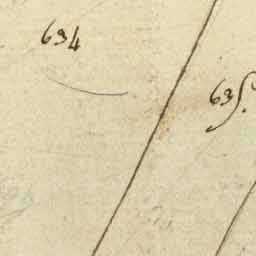 634
635.